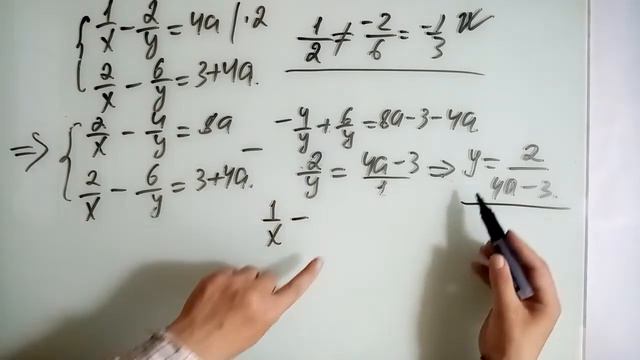 1/x - 2/y = 4a | ·2
2/x - 6/y = 3+4a.
1/2 ≠ -2/-6 = -1/3
⇒ { 2/x - 4/y = 8a
2/x - 6/y = 3+4a.
- -4/y + 6/y = 8a-3-4a
2/y = 4a-3/1 ⇒ y = 2/4a-3.
1/x -